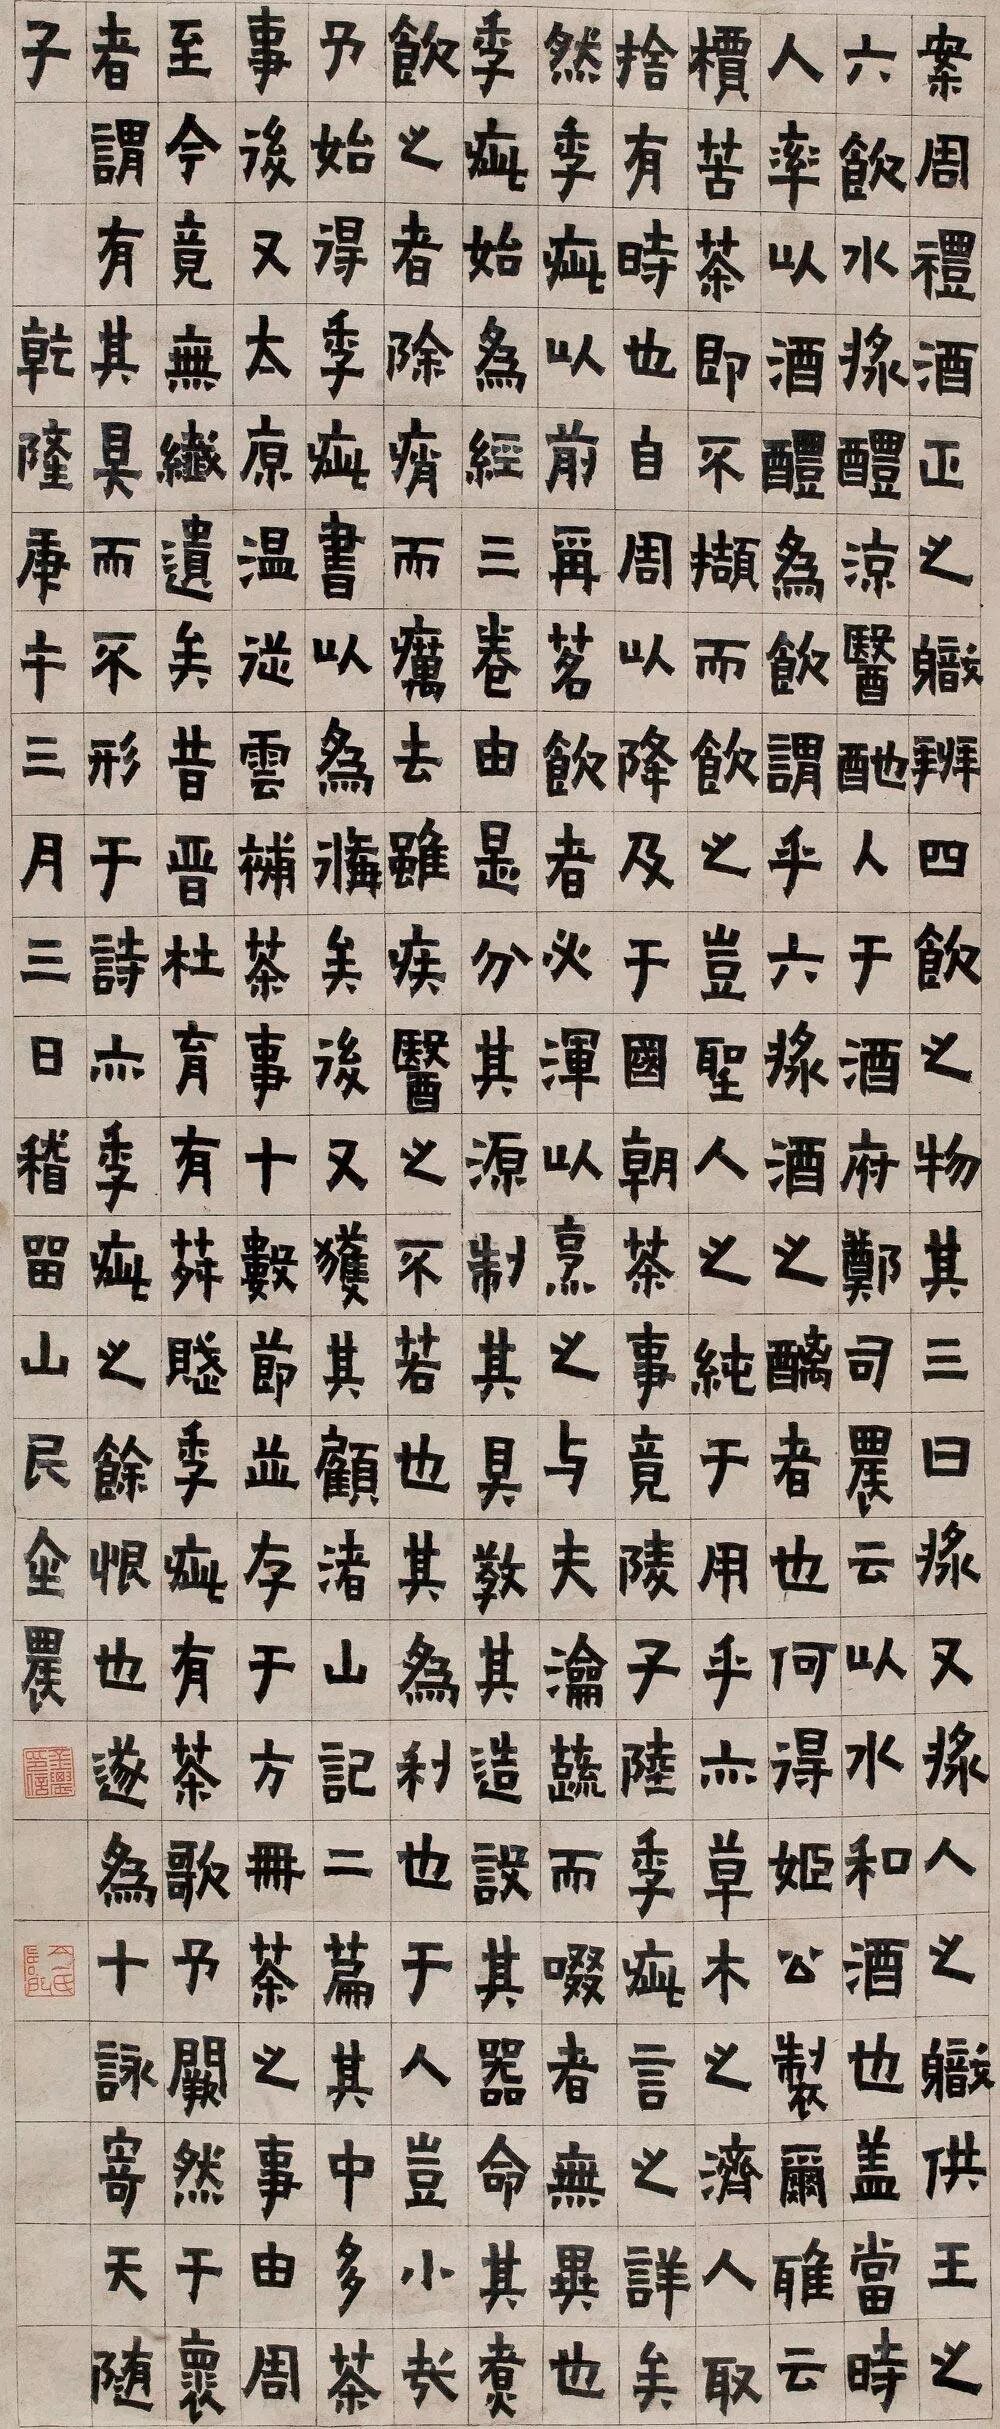 案周禮酒正之職辨四飲之物其三曰漿又漿人之職供王之
六飲水漿醴涼醫酏人于酒府鄭司農云以水和酒也盖當時
人率以酒醴為飲謂乎六漿酒之醨者也何得姬公製爾雅云
檟苦茶即不擷而飲之豈聖人之純于用乎亦草木之濟人取
捨有時也自周以降及于國朝茶事竟陵子陸季疵言之詳矣
然季疵以前爯茗飲者必渾以烹之与夫瀹蔬而啜者無異也
季疵始為經三卷由是分其源制其具教其造設其器命其煮
飲之者除痟而癘去雖疾醫之不若也其為利也于人豈小哉
予始得季疵書以為備矣後又獲其顧渚山記二篇其中多茶
事後又太原温從雲補茶事十數節並存于方冊茶之事由周
至今竟無纖遺矣昔晋杜育有荈賦季疵有茶歌予闕然于懷
者謂有其具而不形于詩亦季疵之餘恨也遂為十詠寄天随
子 乾隆庚午三月三日稽留山民金農